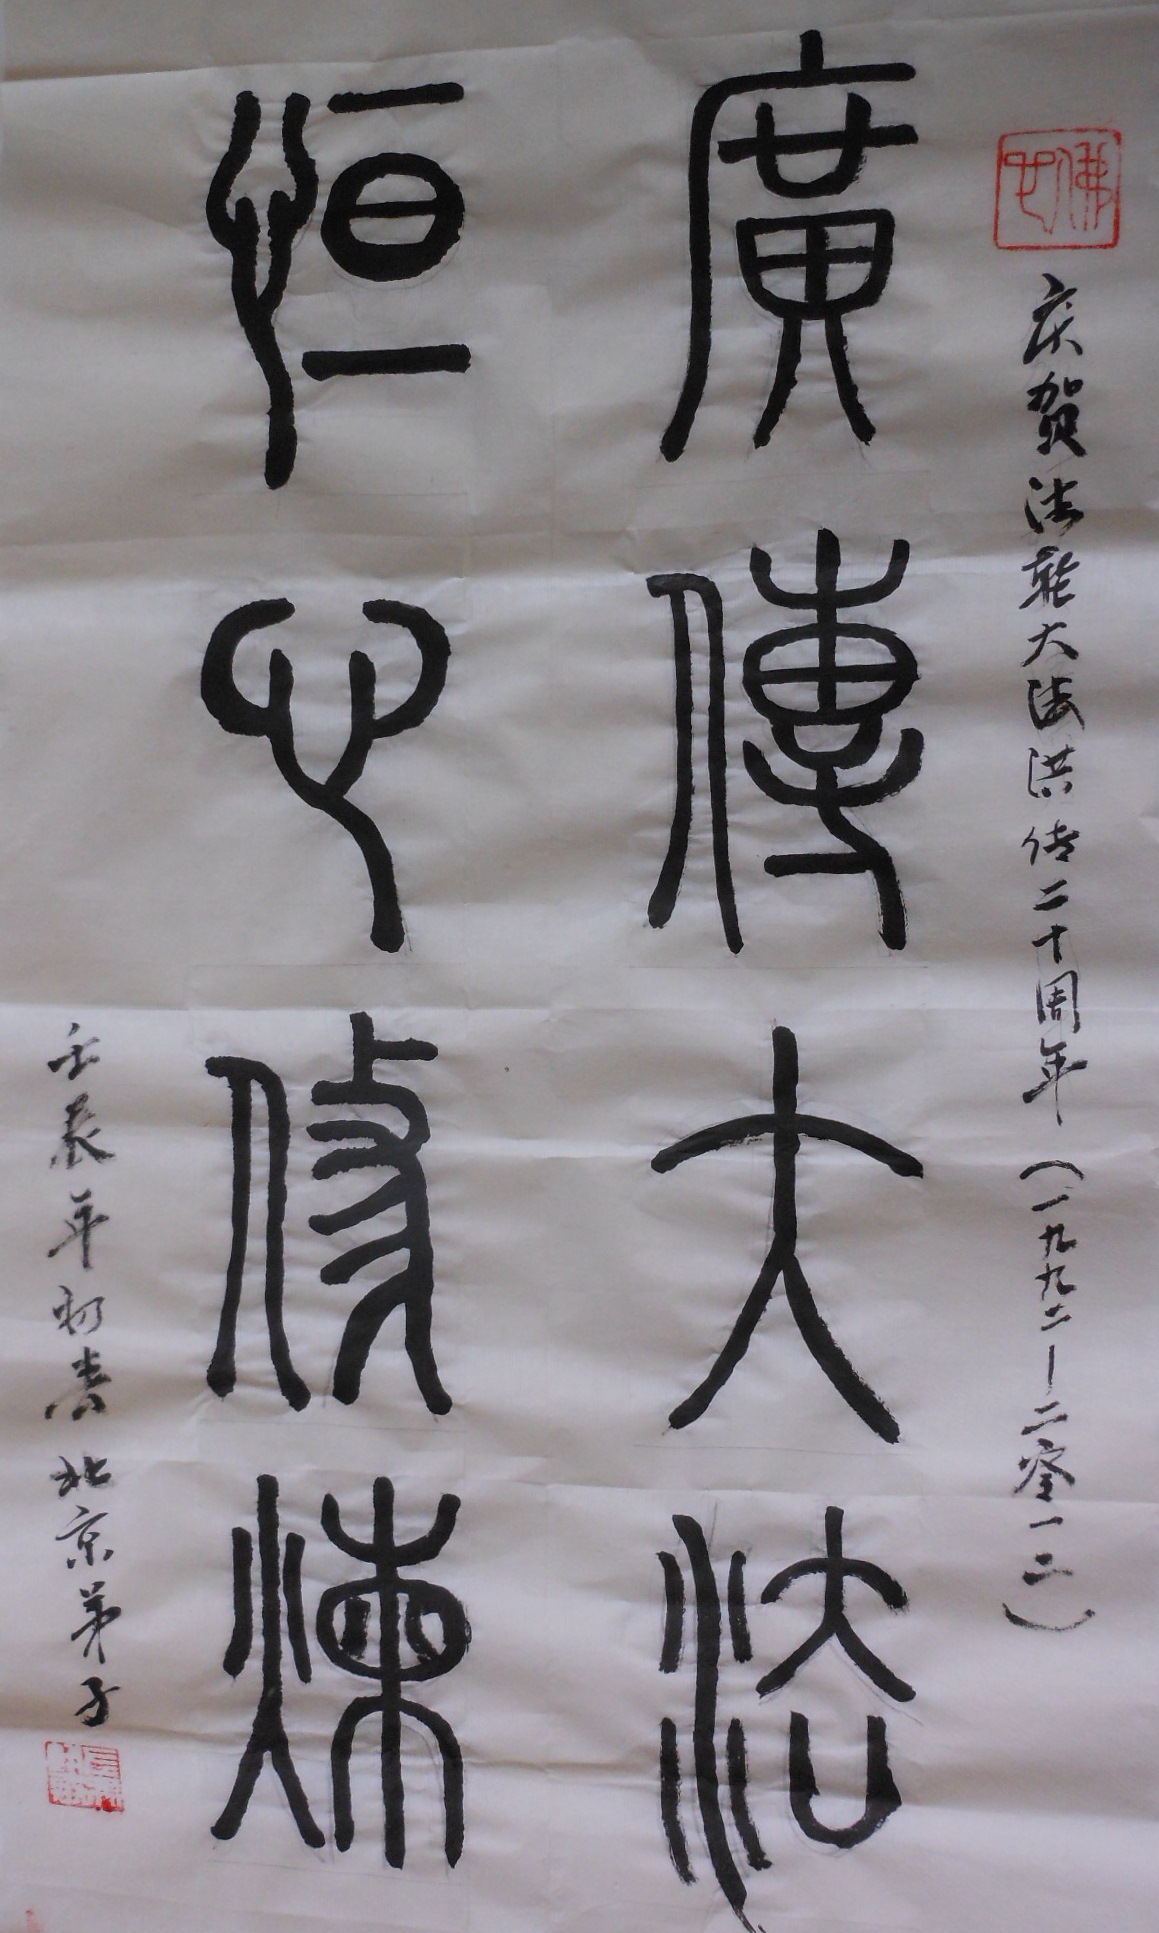 佛心
庆贺法轮大法洪传二十周年（一九九二—二零一二）
廣傳大法
恒心修煉
壬辰年初書 北京弟子